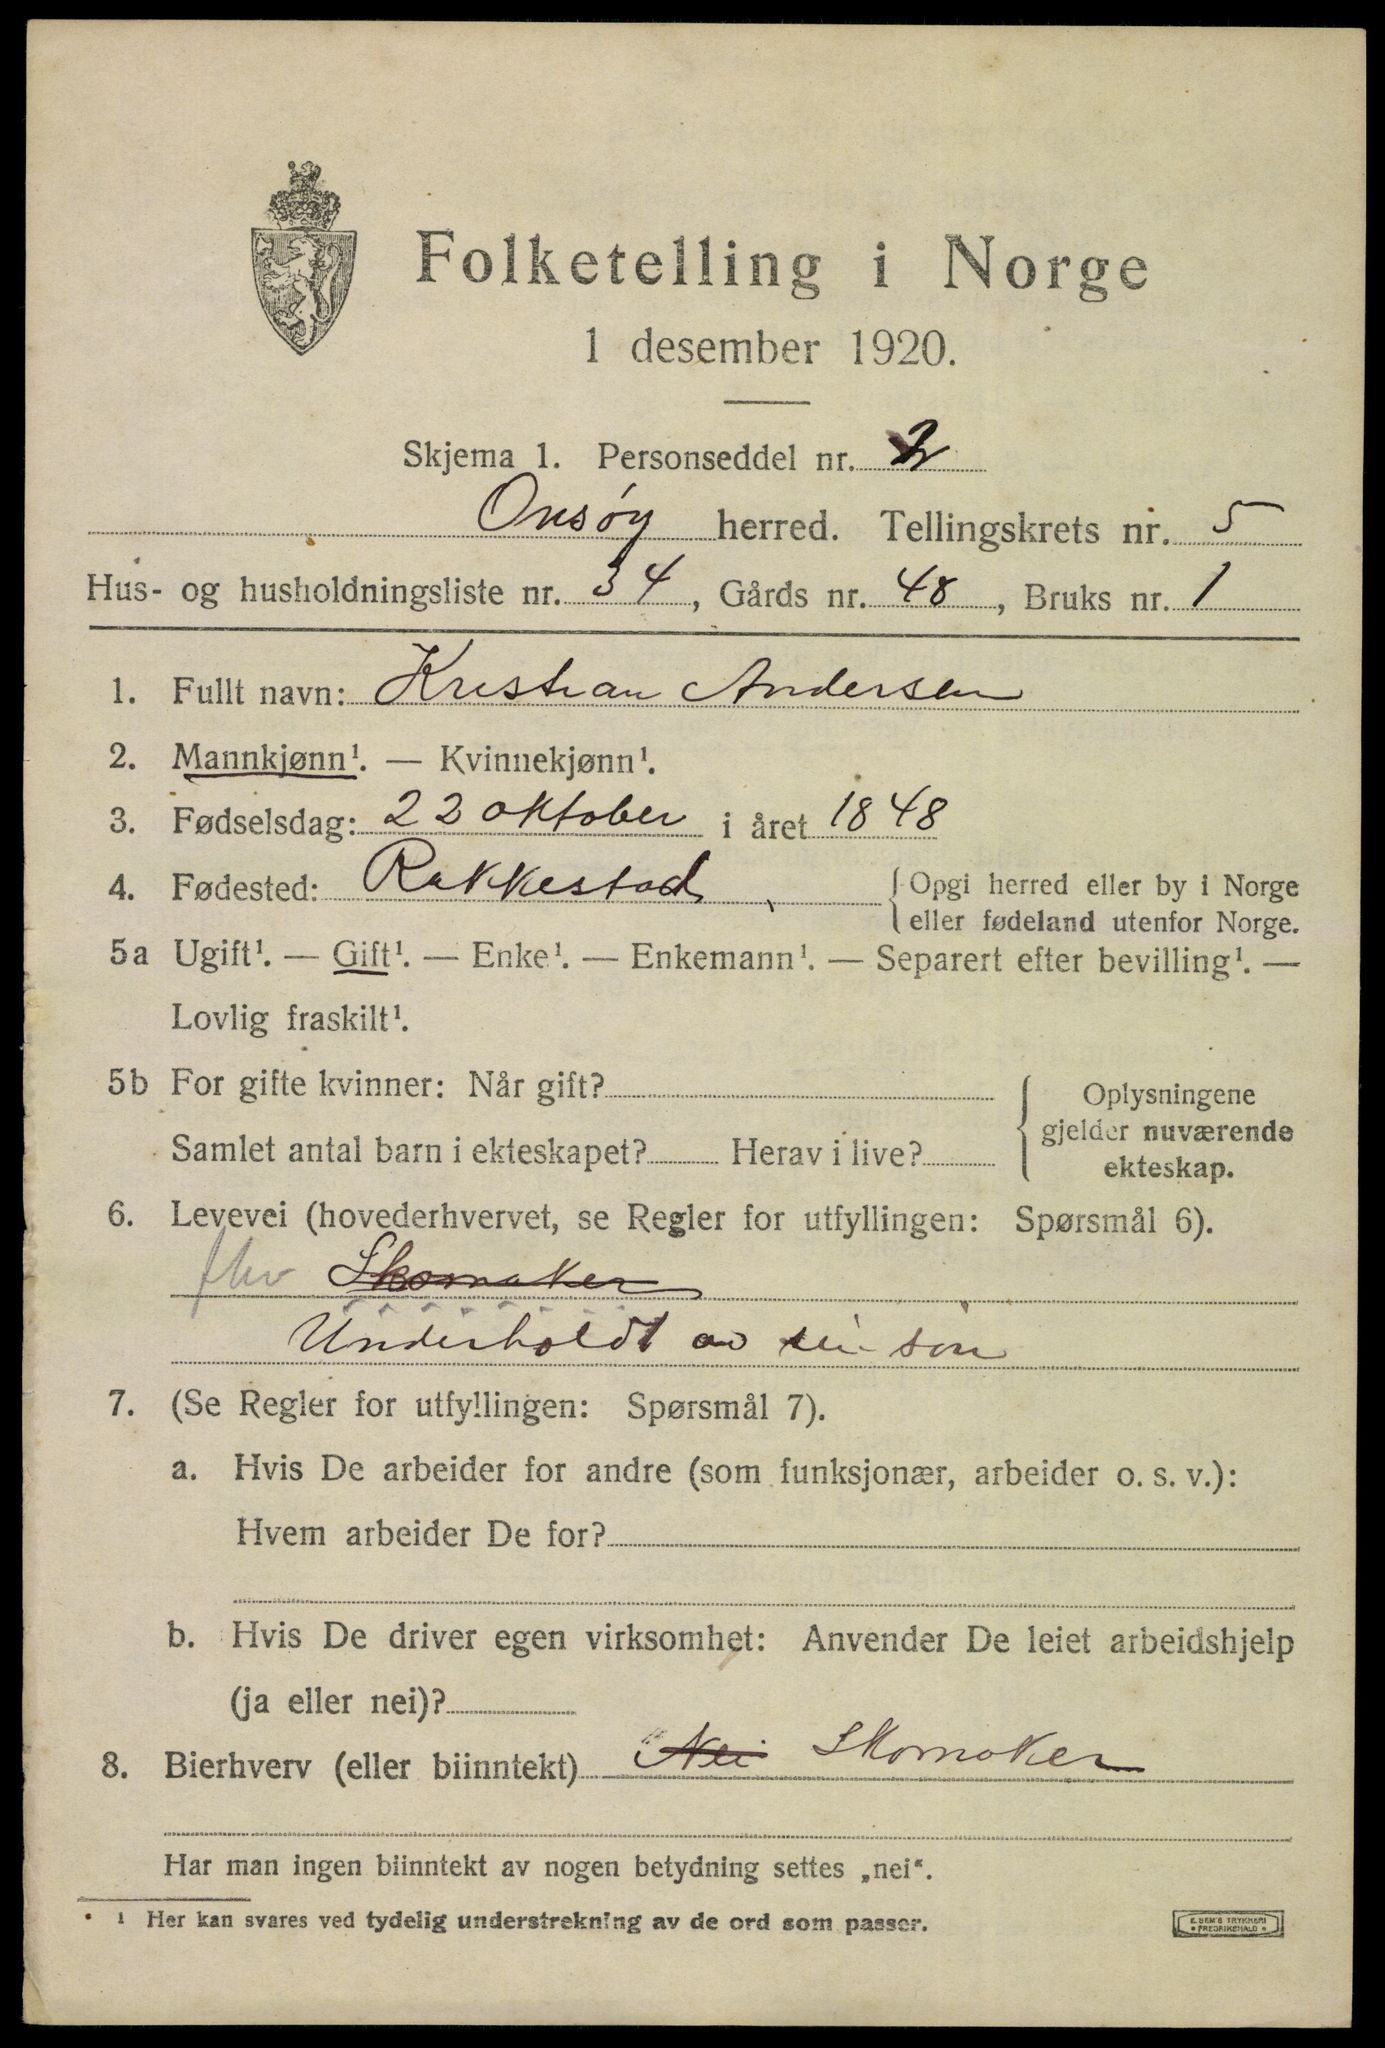 Folketelling i Norge
1 desember 1920.
Skjema 1. Personseddel nr. 2
Onsøy herred. Tellingskrets nr. 5
Hus- og husholdningsliste nr. 34, Gårds nr. 48, Bruks nr. 1
1. Fullt navn: Kristian Andersen
2. Mannkjønn¹. — Kvinnekjønn¹.
3. Fødselsdag: 22 oktober i året 1848
4. Fødested: Rakkestad { Opgi herred eller by i Norge
eller fødeland utenfor Norge.
5a Ugift¹. — Gift¹. — Enke¹. — Enkemann¹. — Separert efter bevilling¹. —
Lovlig fraskilt¹.
5b For gifte kvinner: Når gift?
Samlet antal barn i ekteskapet? Herav i live?
{ Oplysningene
gjelder nuværende
ekteskap.
6. Levevei (hovederhvervet, se Regler for utfyllingen: Spørsmål 6).
fhv Skomaker
Underholdt av sin søn
7. (Se Regler for utfyllingen: Spørsmål 7).
a. Hvis De arbeider for andre (som funksjonær, arbeider o. s. v.):
Hvem arbeider De for?
b. Hvis De driver egen virksomhet: Anvender De leiet arbeidshjelp
(ja eller nei)?
8. Bierhverv (eller biinntekt) Nei Skomaker
Har man ingen biinntekt av nogen betydning settes „nei“.
¹ Her kan svares ved tydelig understrekning av de ord som passer.
E. SEM'S TRYKKERI
• FREDRIKSHALD •